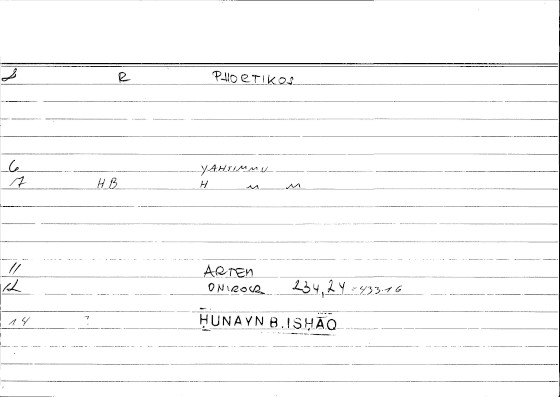 R PHORTIKOS
6 YAHTIMMU
17 HB H M M
11 ARTEM
12 ONIROCR 234,24 = 433.16
14 ? ḤUNAYN B. ISḤĀQ